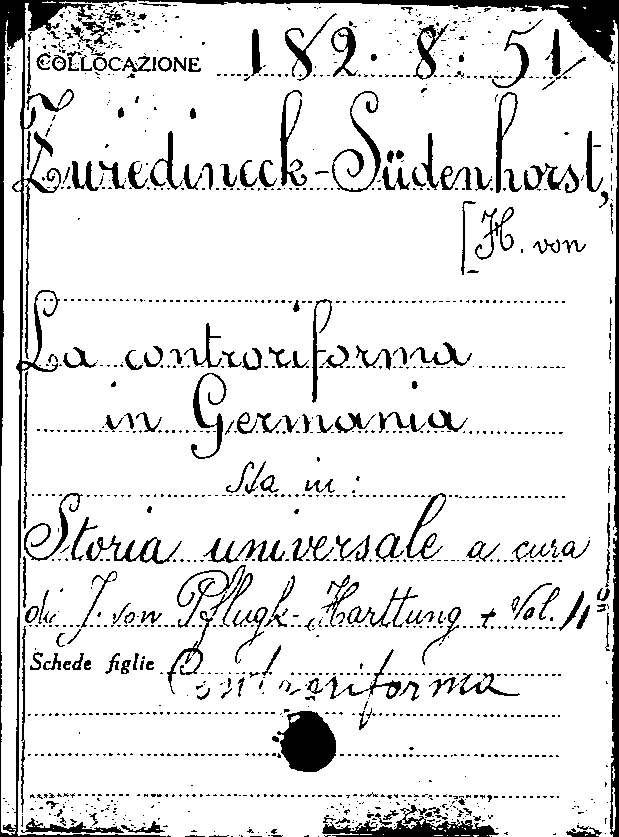 COLLOCAZIONE 182. 8. 51
Zwiedineck-Südenhorst,
[H. von
La controriforma
in Germania
Sta in:
Storia universale a cura
di J. von Pflugk-Harttung + Vol. 4º
Schede figlie Controriforma